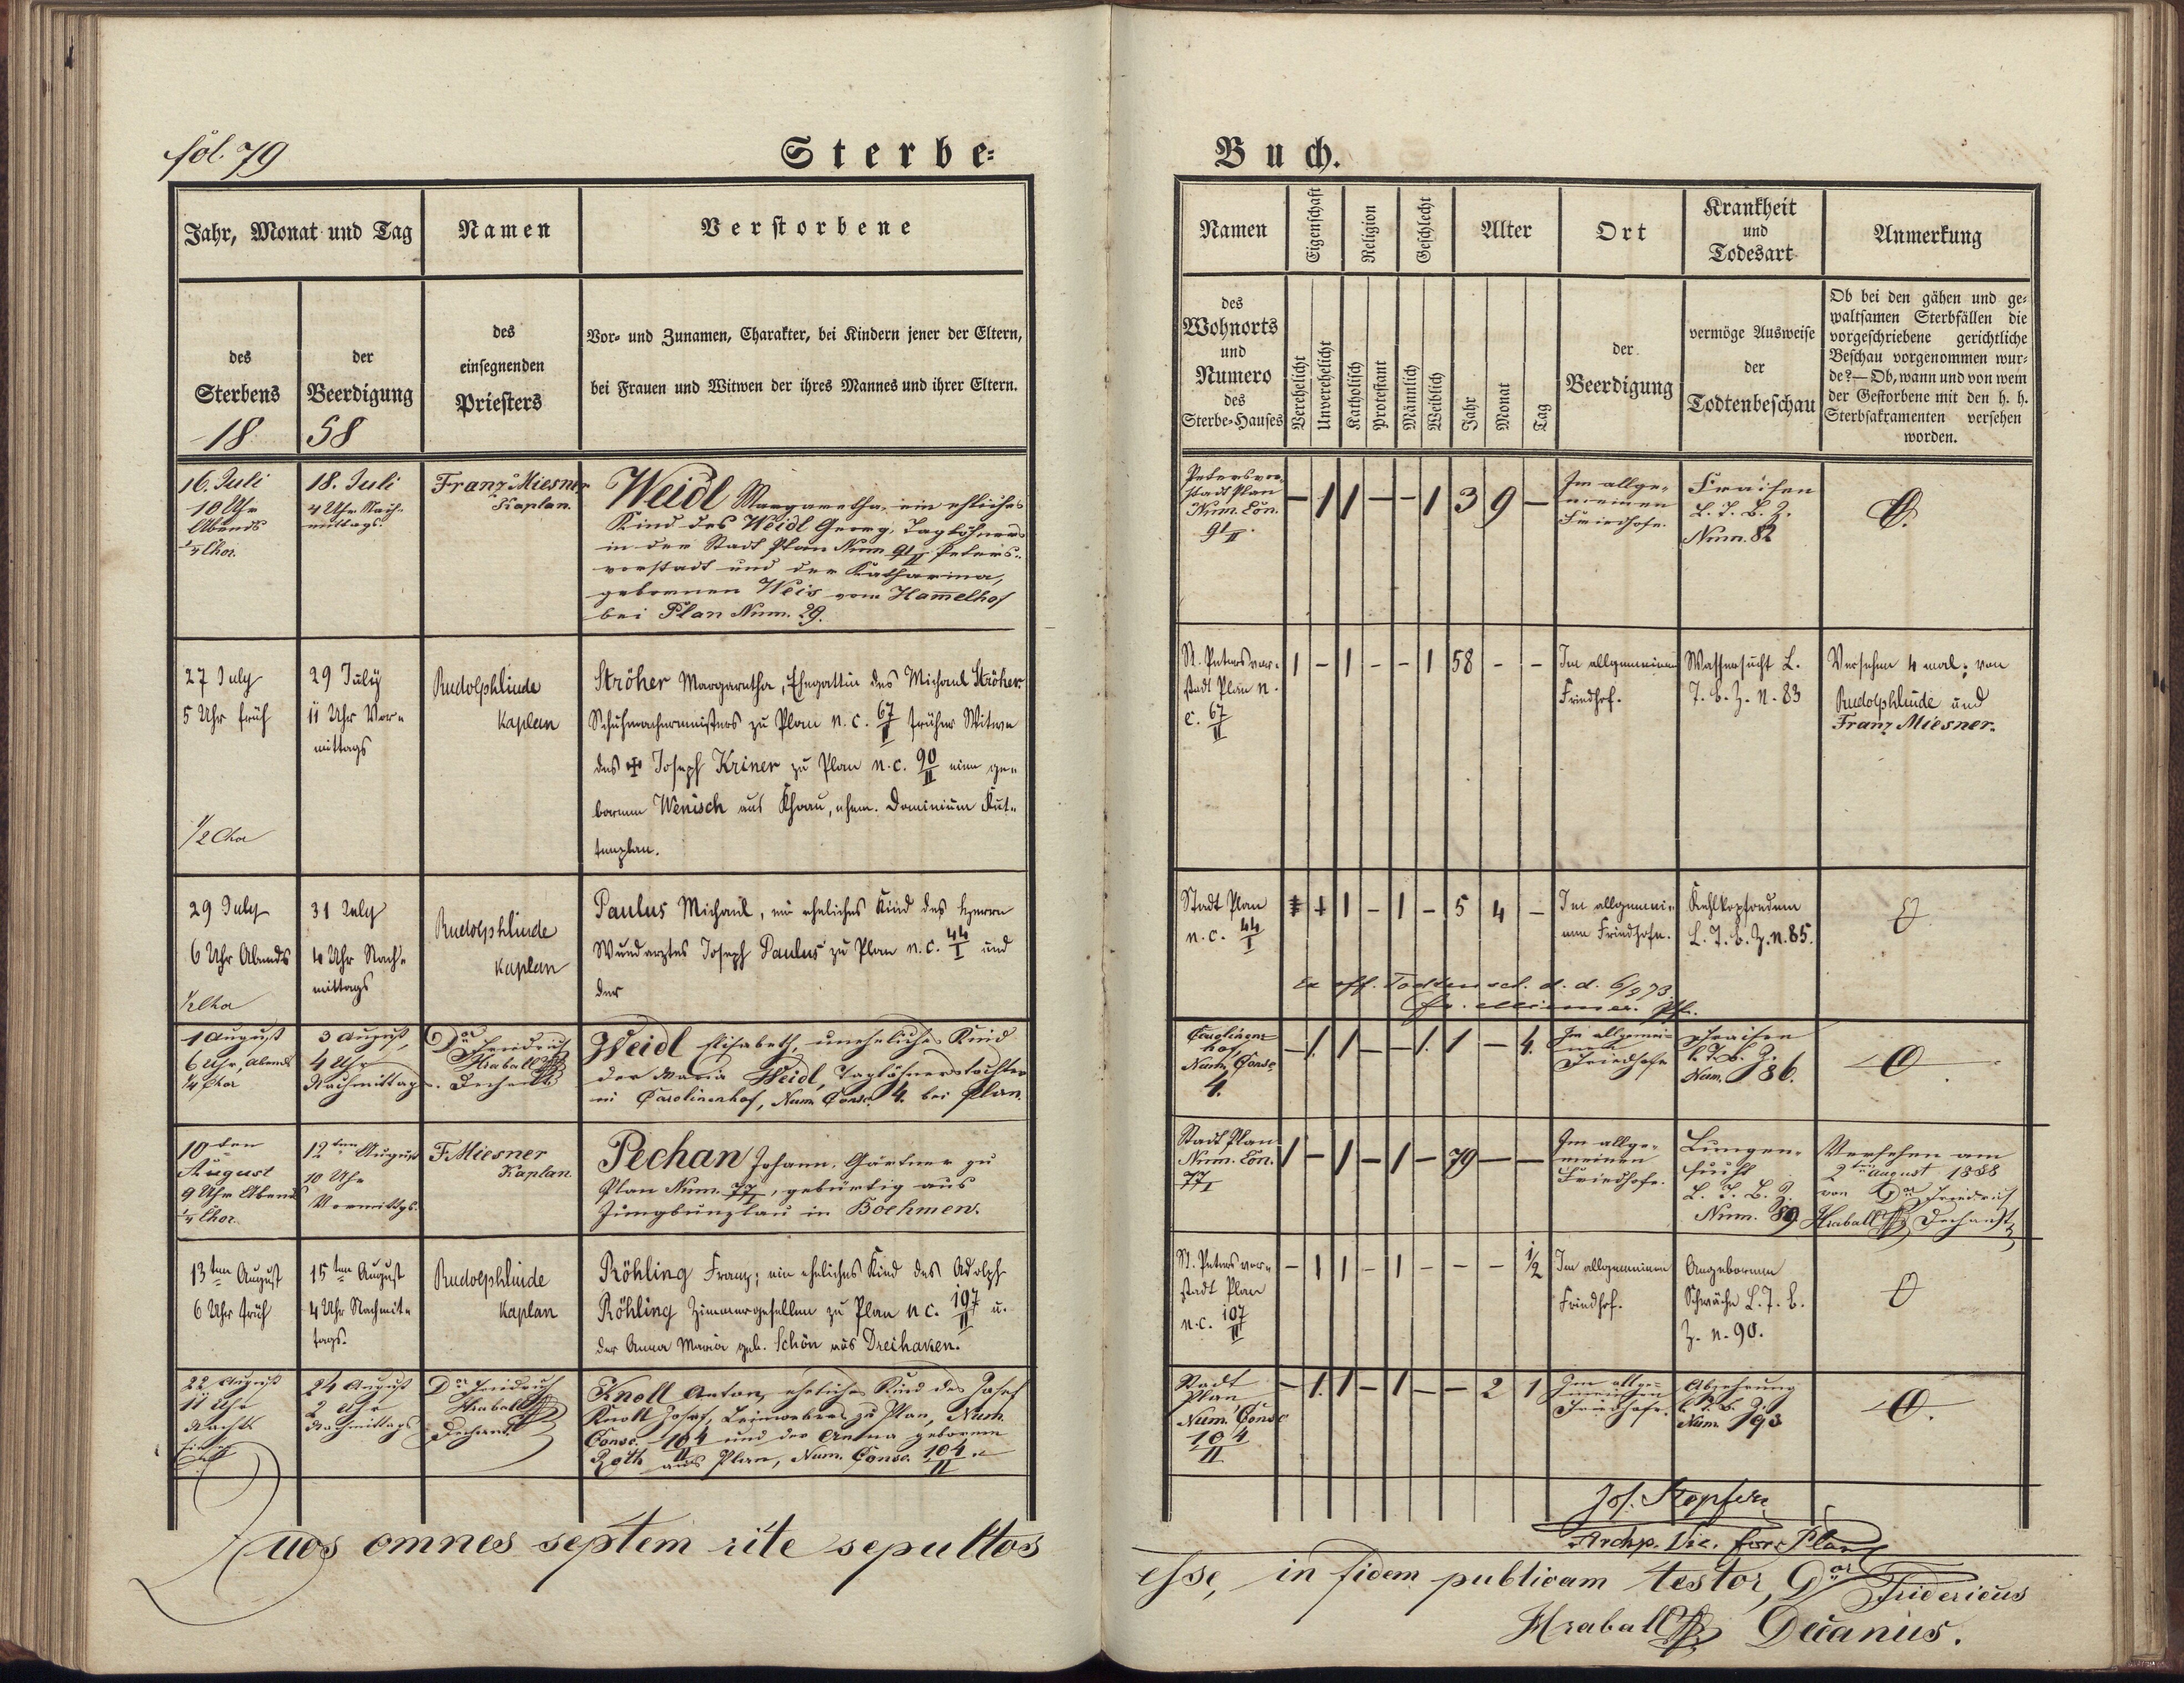 fol. 79
Sterbe-
Jahr, Monat und Tag
Namen
Verstorbene
des
Sterbens
18
der
Beerdigung
58
des
einsegnenden
Priesters
Vor- und Zunamen, Charakter, bei Kindern jener der Eltern,
bei Frauen und Witwen der ihres Mannes und ihrer Eltern.
16. Juli
10 Uhr
Abends
18. Juli
4 Uhr Nach-
mittags.
Franz Miesner
Kaplan.
Weidl Margaretha, ein ehliches
Kind des Weidl Georg, Taglöhners
in der Stadt Plan Num 91/II Peters-
vorstadt und der Katharina,
gebornen Weis vom Ham̅elhof
bei Plan Num. 29.
27 July
5 Uhr früh
1/2 Chor
29 July
11 Uhr Vor-
mittags
Rudolph Linde
Kaplan
Ströher Margaretha, Ehegattin des Michael Ströher
Schuhmachermeisters zu Plan n. c. 67/II früher Witwe
des ✠ Joseph Kriner zu Plan n. c. 90/II eine ge-
borene Wenisch aus Khoau, ehem. Dominium Kut-
tenplan.
29 July
6 Uhr Abends
1/2 Chor
31 July
4 Uhr Nach-
mittags
Rudolph Linde
Kaplan
Paulus Michael, ein eheliches Kind des Herrn
Wundarztes Joseph Paulus zu Plan n. c. 44/I und
der
1 August
6 Uhr, Abends
1/4 Chor
3 August,
4 Uhr
Nachmittag
Friedrich
Hraball
Dechant
Weidl Elisabeth, uneheliches Kind
der Maria Weidl, Taglöhnerstochter
in Carolinenhof, Num Consc. 4. bei Plan.
10ten
August
9 Uhr Abends
1/4 Chor.
12ten August
10 Uhr
Vormittgs.
F. Miesner
Kaplan.
Pechan Johann, Gärtner zu
Plan Num. 77/I, gebürtig aus
Jungbunzlau in Boehmen.
13ten August
6 Uhr früh
15ten August
4 Uhr Nachmit-
tags.
Rudolph Linde
Kaplan
Röhling Franz; ein eheliches Kind des Adolph
Röhling Zimmergesellen zu Plan n c. 107/II u.
der Anna Maria geb. Schön aus Dreihaken.
22 August
11 Uhr
Nachts
24 August
2 Uhr
Nachmittags
Friedrich
Hraball
Dechant
Knoll Anton, eheliches Kind des Josef
Knoll Josef, Leinwebers zu Plan, Num.
Consc. 104/II und der Anna geborene
Roth aus Plan, Num. Consc. 104/II
Quos omnes septem rite sepultos
Buch.
Namen
Eigenschaft
Religion
Geschlecht
Alter
Ort
Krankheit
und
Todesart
Anmerkung
des
Wohnorts
und
Numero
des
Sterbe-Hauses
Verehelicht
Unverehelicht
Katholisch
Protestant
Männlich
Weiblich
Jahr
Monat
Tag
der
Beerdigung
vermöge Ausweise
der
Todtenbeschau
Ob bei den gähen und ge-
waltsamen Sterbfällen die
vorgeschriebene gerichtliche
Beschau vorgenommen wur-
de?—Ob, wann und von wem
der Gestorbene mit den h. h.
Sterbsakramenten versehen
worden.
Petersvor-
stadt Plan
Num. Con.
91/II.
– 1 1 – – 1 3 9 –
Im allge-
meinen
Friedhofe.
Fraisen
L. T. B. Z.
Num. 82
St. Petersvor-
stadt Plan n.
c. 67/II
1 – 1 – – 1 58 – –
Im allgemeinen
Friedhof.
Wassersucht L.
T. B. Z. n. 83
Versehen 4 mal; von
Rudolph Linde und
Franz Miesner.
Stadt Plan
n. c. 44/I
1 – 1 – 5 4 –
Im allgemei-
nen Friedhofe.
Kehlkopfoedem
L. T. B. Z. n. 85.
Ex off. Todtensch. d. d. 6/9 73
Carolinen-
hof
Num, Consc.
4.
– 1. 1 – – 1. 1 – 4.
Im allgemei-
nen
Friedhofe
Fraisen
L. T. B. Z.
Num. 86.
Stadt Plan
Num. Con.
77/I
1 – 1 – 1 – 79 – –
Im allge-
meinen
Friedhofe.
Lungen-
sucht
L. T. B. Z.
Num. 89
Versehen am
2ten August 1858
von Friedrich
Hraball Dechant
St. Petersvor-
stadt Plan
n. c. 107/II
– 1 1 – 1 – – – 1/2
Im allgemeinen
Friedhof.
Angeborene
Schwäche L. T. B.
Z. n. 90.
Stadt
Plan
Num. Consc
104/II
– 1. 1 – 1 – – 2 1
Im allge-
meinen
Friedhofe.
Abzehrung
L. T. B. Z.
Num. 93
Archp. Vic. for. Plan
esse, in fidem publicam testor, Fridericus
Hraball Decanus.